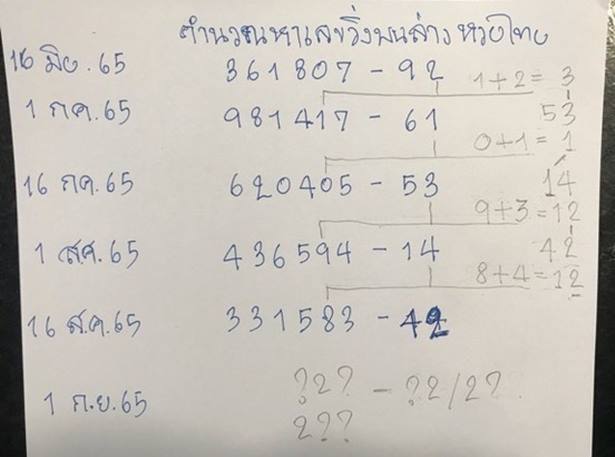 คำนวณหาเลขวิ่งบนล่าง หวยไทย
16 มิย. 65 361807 - 92 1+2= 3
1 กค. 65 981417 - 61 53
0+1= 1
16 กค. 65 620405 - 53 14
9+3=12
1 สค. 65 436594 - 14 42
8+4=12
16 ส.ค. 65 331583 - 42
1 ก.ย. 65 ?2? - ?2/2?
2??